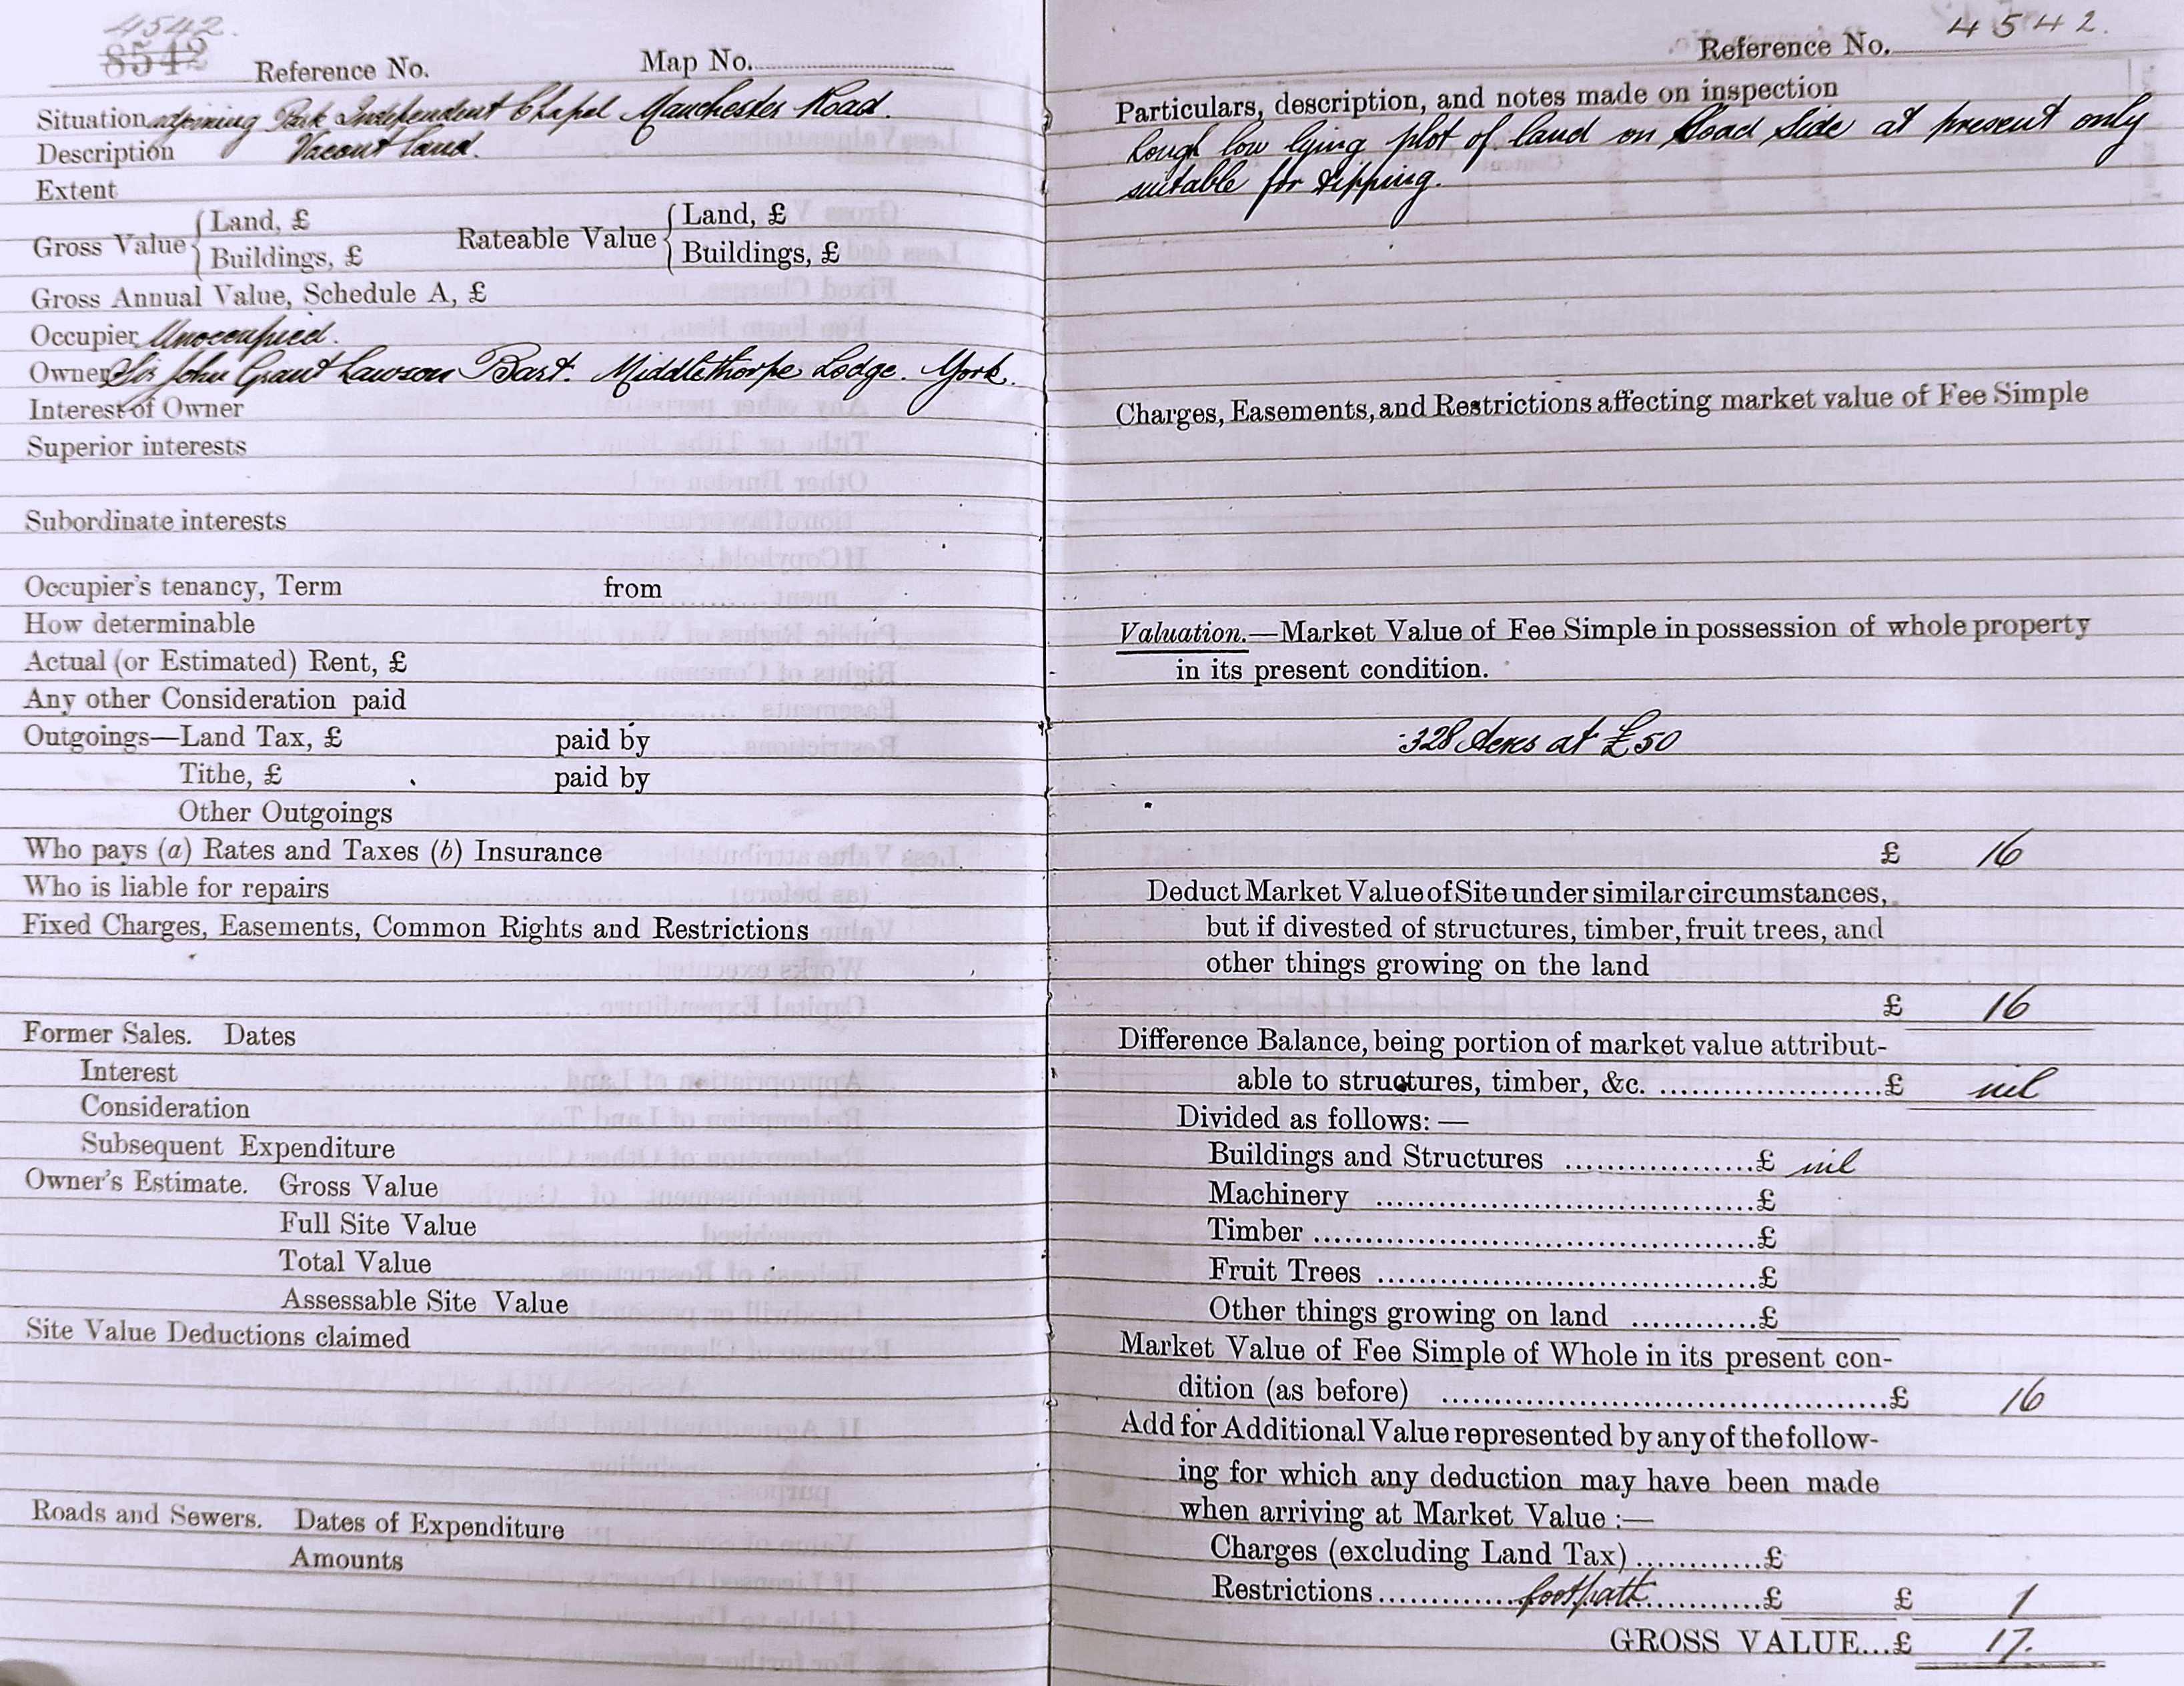 4542.
8542 Reference No. Map No.
Situation adjoining Park Independent Chapel Manchester Road.
Description Vacant Land.
Extent
Gross Value { Land, £ Rateable Value { Land, £
Buildings, £ Buildings, £
Gross Annual Value, Schedule A, £
Occupier Unoccupied.
Owner Sir John Grant Lawson Bart. Middlethorpe Lodge. York.
Interest of Owner
Superior interests
Subordinate interests
Occupier's tenancy, Term from
How determinable
Actual (or Estimated) Rent, £
Any other Consideration paid
Outgoings—Land Tax, £ paid by
Tithe, £ paid by
Other Outgoings
Who pays (a) Rates and Taxes (b) Insurance
Who is liable for repairs
Fixed Charges, Easements, Common Rights and Restrictions
Former Sales. Dates
Interest
Consideration
Subsequent Expenditure
Owner's Estimate. Gross Value
Full Site Value
Total Value
Assessable Site Value
Site Value Deductions claimed
Roads and Sewers. Dates of Expenditure
Amounts
Reference No. 4542.
Particulars, description, and notes made on inspection
Rough low lying plot of land on Road Side at present only
suitable for tipping.
Charges, Easements, and Restrictions affecting market value of Fee Simple
Valuation.—Market Value of Fee Simple in possession of whole property
in its present condition.
·328 Acres at £50
£ 16
Deduct Market Value of Site under similar circumstances,
but if divested of structures, timber, fruit trees, and
other things growing on the land
£ 16
Difference Balance, being portion of market value attribut-
able to structures, timber, &c. ........................£ nil
Divided as follows:—
Buildings and Structures ...................£ nil
Machinery ......................................£
Timber ............................................£
Fruit Trees ......................................£
Other things growing on land ............£
Market Value of Fee Simple of Whole in its present con-
dition (as before) ...............................................£ 16
Add for Additional Value represented by any of the follow-
ing for which any deduction may have been made
when arriving at Market Value :—
Charges (excluding Land Tax)............£
Restrictions..............footpath............£ £ 1
GROSS VALUE...£ 17.